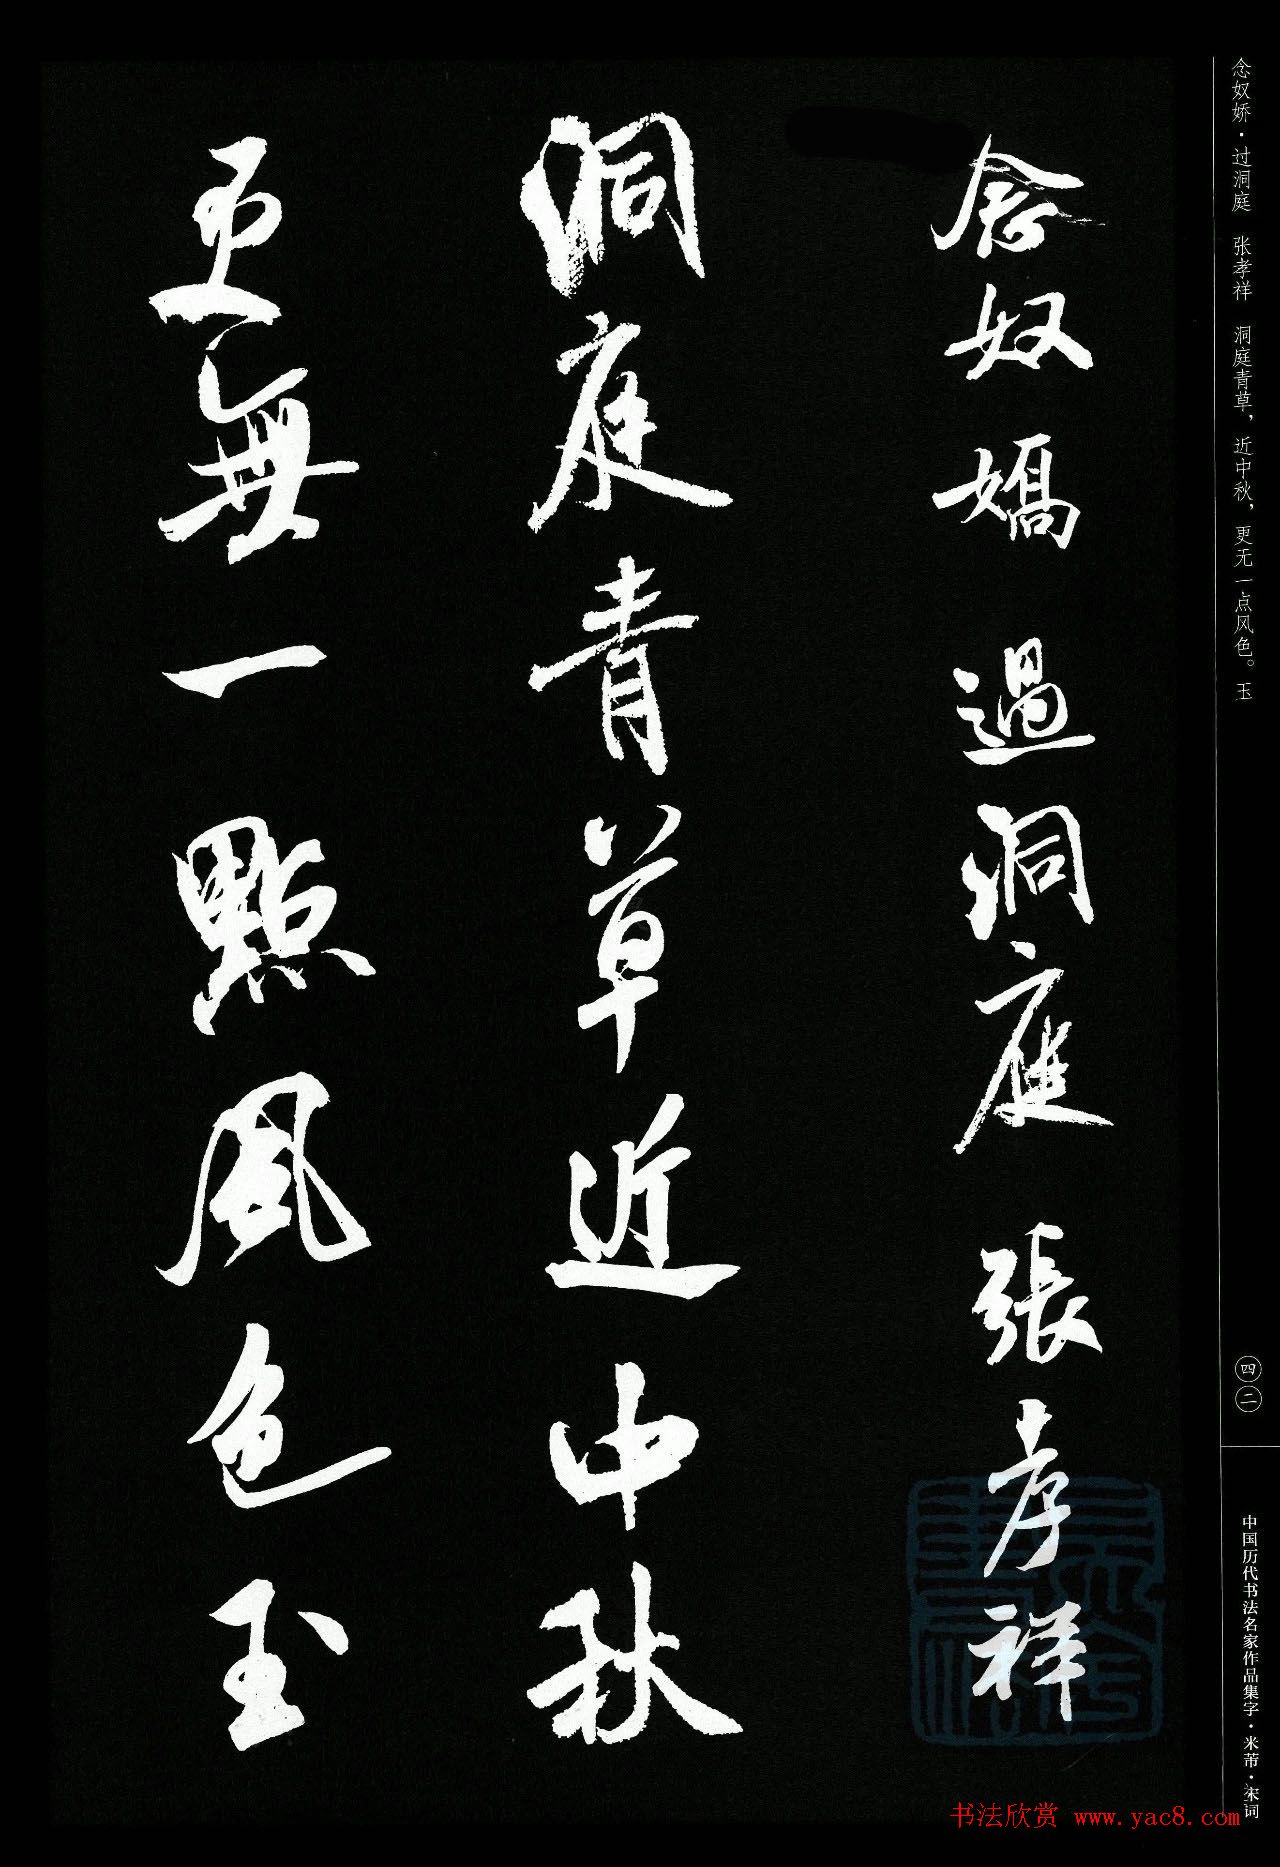 念奴嬌 過洞庭 張孝祥
洞庭青草近中秋
更無一點風色玉
念奴娇·过洞庭 张孝祥 洞庭青草，近中秋，更无一点风色。玉
四二
中国历代书法名家作品集字·米芾·宋词
书法欣赏 www.yac8.com